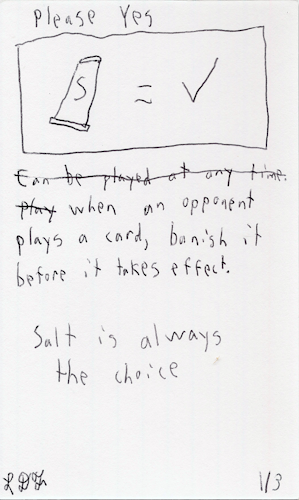 Please Yes
S = ✓
Can be played at any time.
Play when an opponent
plays a card, banish it
before it takes effect.
Salt is always
the choice
1/3